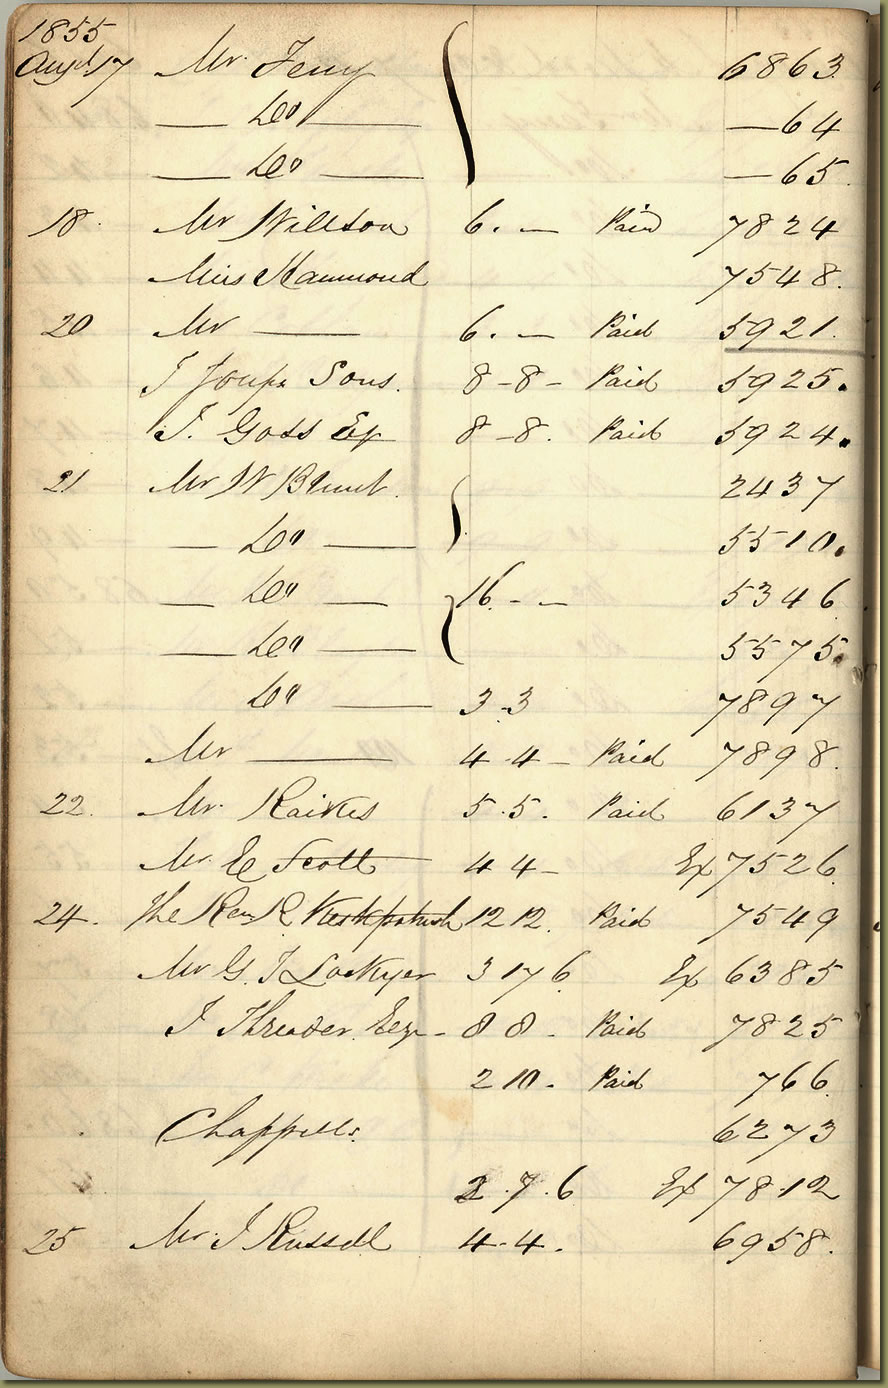 1855
Augt 17 Mr. Terry 6863
— Do — — 64
— Do — — 65
18. Mr Willson 6. — Paid 7824
Miss Hammond 7548.
20 Mr — 6. — Paid 5921.
J Sons. 8-8- Paid 5925.
J. Goss 8-8. Paid 5924.
21 Mr W Blunt. 2437
— Do — 5510.
— Do — 16 - - 5346
— Do — 5575.
Do — 3.3 7897
Mr — 4-4- Paid 7898.
22. Mr. Raikes 5.5. Paid 6137
Mr. E Scott 4 4- Ex 7526
24. The Rev R Kirkpatrick 12 12. Paid 7549
Mr G. T Lockyer 3 17 6 Ex 6385
J Threader Esq- 8 8 - Paid 7825
2 10 - Paid 766
Chappells. 6273
2.7.6 Ex 7812
25 Mr. J Russell 4-4. 6958.